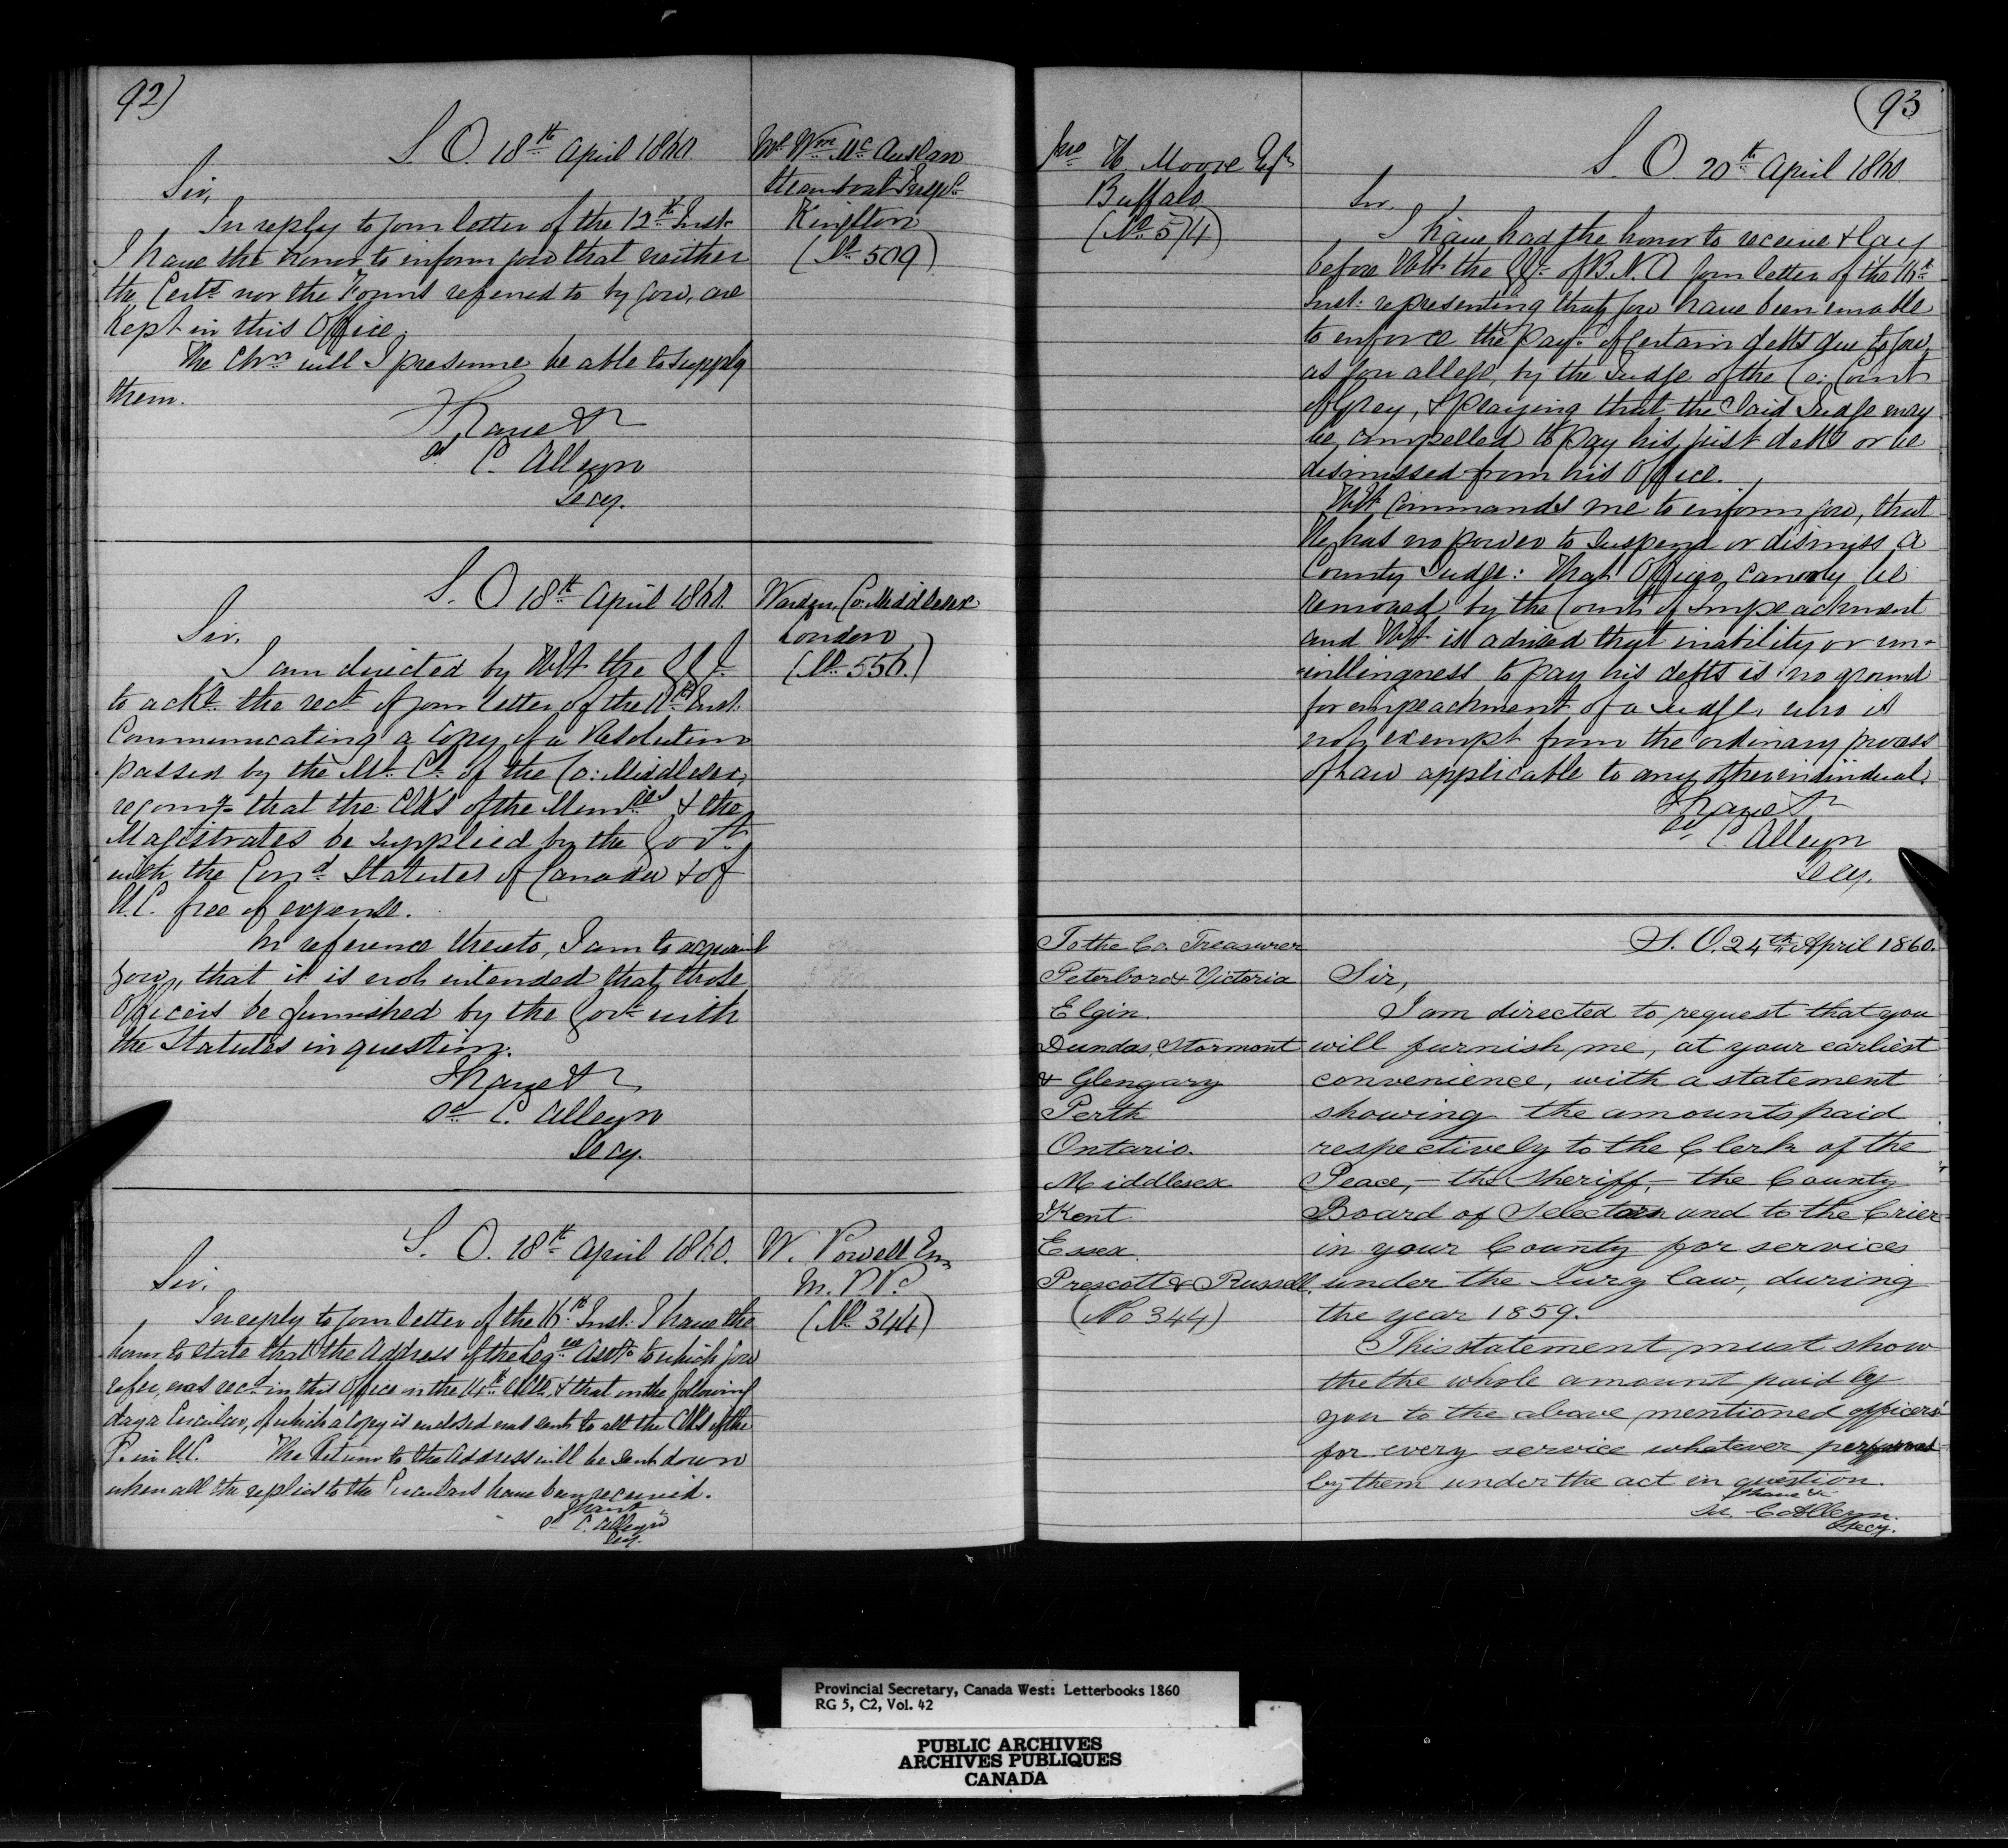 92)
S. O. 18th April 1860.
Mr Wm McAuslan
Steamboat Inspr
Kingston
(No 509)
Sir,
In reply to your letter of the 12th Inst.
I have the honor to inform you that neither
the Certs nor the Forms referred to by you, are
Kept in this Office.
The Chn will I presume be able to supply
them.
I have &c
Sd C. Alleyn
Secy.
S. O. 18th April 1860.
Warden, Co: Middlesex
London
(No 556.)
Sir,
I am directed by HE the GG
to ackn the rect of your letter of the Inst.
Communicating a Copy of a Resolution
passed by the Ml Cl of the Co: Middlesex,
recomg that the Clks of the & the
Magistrates be supplied by the Govt
with the Cond Statutes of Canada & of
U.C. free of expense.
In reference thereto, I am to acquaint
you, that it is not intended that those
Officers be furnished by the Govt with
the Statutes in question.
I have &c
Sd C. Alleyn
Secy.
S. O. 18th April 1860.
W. Powell Esq
M. P. P.
(No 344)
Sir,
In reply to your letter of the 16th Inst. I have the
honor to state that the Address of the Legve Assy to which you
refer, was recd in this Office on the & that on the following
day a Circular, of which a Copy is enclosed was sent to all the Clks of the
P. in U.C. The Return to the Address will be sent down
when all the replies to the Circulars have been received.
I have
Sd C. Alleyn
Secy.
93
Jno H. Moore Esqr
Buffalo
(No 574)
S. O. 20th April 1860.
Sir,
I have had the honor to receive & lay
before HE the GG of B.N.A your letter of the 16th
Inst: representing that you have been unable
to enforce the payt of certain debts due to you,
as you allege, by the Judge of the Co: Court
of Grey, & praying that the said Judge may
be compelled to pay his just debts or be
dismissed from his Office.
HE Commands me to inform you, that
He has no power to suspend or dismiss a
County Judge: That Officer can only be
removed by the Court of Impeachment
and HE is advised that inability or un-
willingness to pay his debts is no ground
for impeachment of a Judge, who is
not exempt from the ordinary process
of Law applicable to any other individual.
I have &c
Sd C. Alleyn
Secy.
To the Co. Treasurer
Peterboro & Victoria
Elgin.
Dundas, Stormont
& Glengary
Perth
Ontario.
Middlesex
Kent
Essex
Prescott & Russell.
(No 344)
S. O. 24th April 1860.
Sir,
I am directed to request that you
will furnish me, at your earliest
convenience, with a statement
showing the amounts paid
respectively to the Clerk of the
Peace,— the Sheriff,— the County
Board of Selectors and to the Crier
in your County for services
under the Jury law, during
the year 1859.
This statement must show
the the whole amount paid by
you to the above mentioned officers
for every service whatever performed
by them under the act in question.
I have &c
Sd. C Alleyn.
Secy.
Provincial Secretary, Canada West: Letterbooks 1860
RG 5, C2, Vol. 42
PUBLIC ARCHIVES
ARCHIVES PUBLIQUES
CANADA